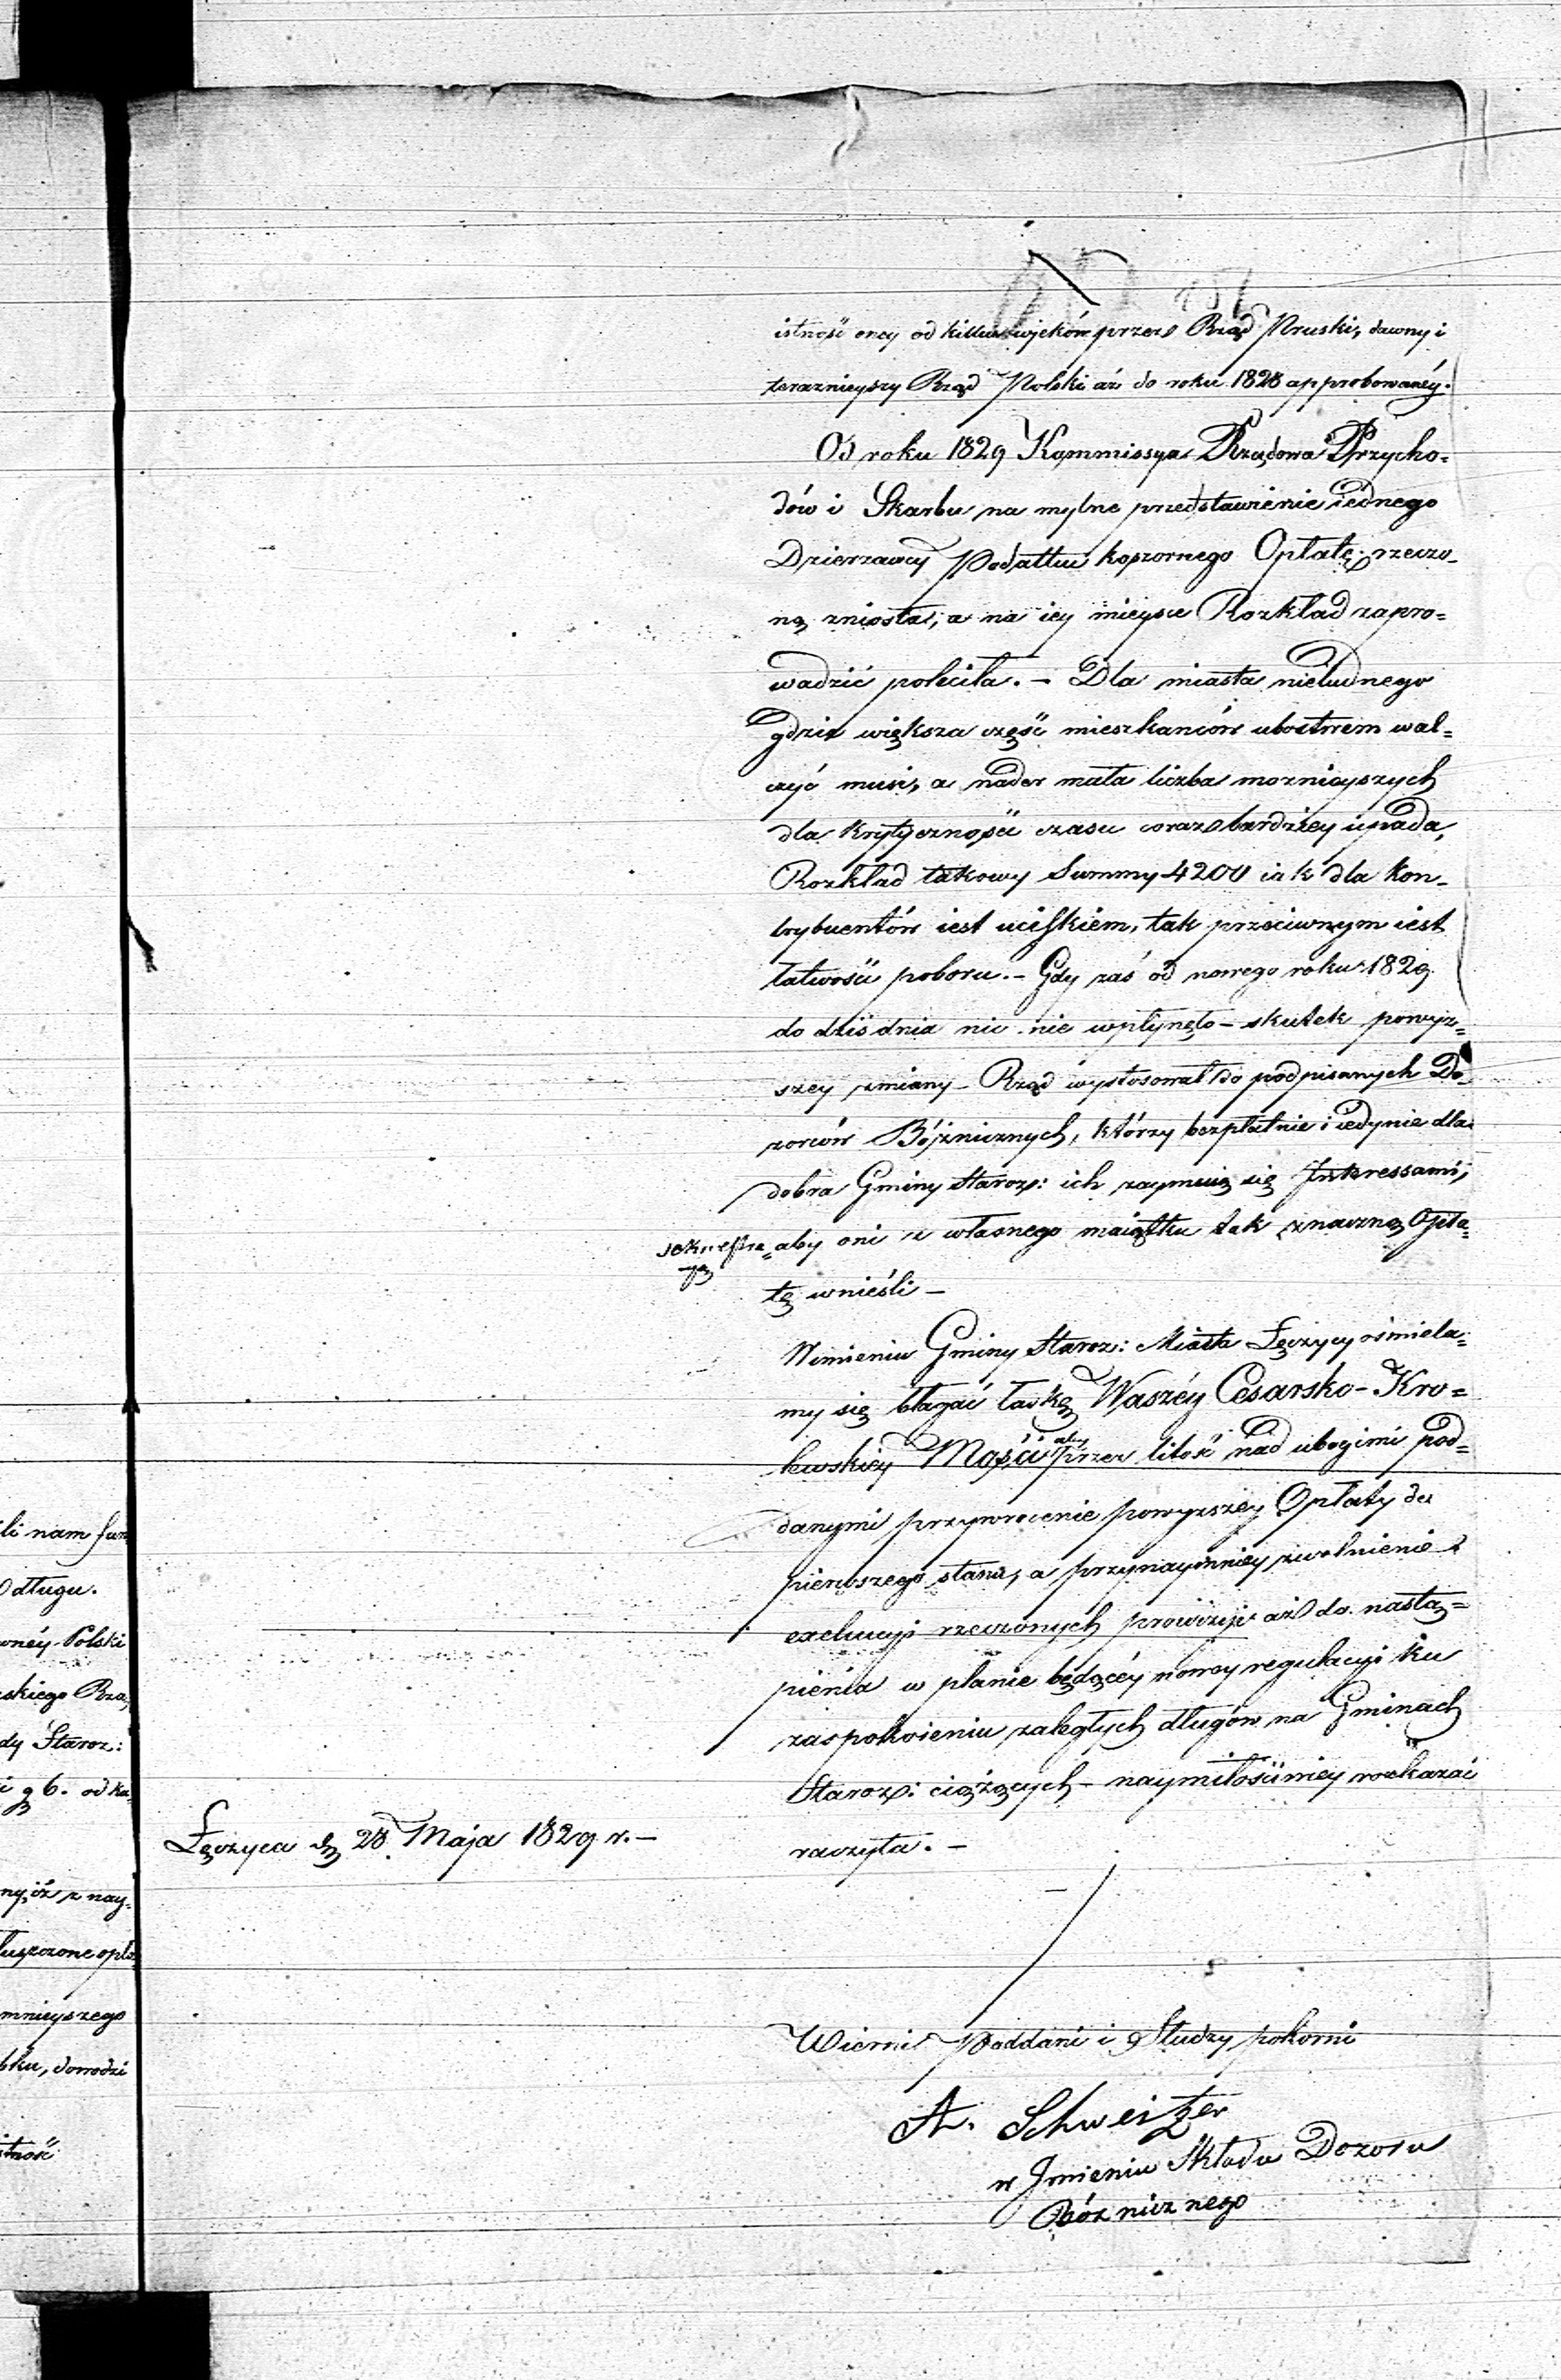 istność oney od kilku wieków przez Rząd Pruski, dawny i
teraznieyszy Rząd Polski aż do roku 1828 approbowanéy.
Od roku 1829 Kommissya Rządowa Przycho=
dów i Skarbu na mylne przedstawienie iednego
Dzierzawcy Podatku koszernego Opłatę rzeczo-
ną zniosła, a na iey mieysce Rozkład zapro=
wadzić poleciła. – Dla miasta nieludnego
gdzie większa część mieszkanców ubostwem wal=
czyć musi, a nader mała liczba moznieyszych
dla krytyczności czasu coraz bardziey upada,
Rozkład takowy Summy 4200 iak dla kon-
trybuentów iest uciskiem, tak przeciwnym iest
łatwości poboru. – Gdy zaś od nowego roku 1829
do dziś dnia nic nie wpłynęło – skutek powyz=
szey zmiany – Rząd wystosował do podpisanych Do=
zorców Bóżnicznych, którzy bezpłatnie i iedynie dla
dobra Gminy Staroz: ich zaymuią się Interessami,
aby oni z własnego maiątku tak znaczną Opła=
tę wnieśli –
W imieniu Gminy Staroz: Miasta Łęczycy osmiela=
my się błagać łaskę Waszéy Cesarsko-Kro=
lewskiey Mości aby przez litość nad ubogimi pod=
danymi przywrocenie powyzszey Opłaty do
pierwszego stanu, a przynaymniey zwolnienie z
exekucyi rzeczonych prowizyi aż do nastą=
pienia w planie będącéy nowey regulacyi ku
zaspokoieniu zaległych długów na Gminach
Staroz: ciążących – naymiłościwiey rozkazać
raczyła. –
Łęczyca d. 28 Maja 1829 r. –
Wierni Poddani i Słudzy pokorni
A. Schweitzer
w Jmieniu Składu Dozoru
Bóżnicznego
li nam
długu.
Polski
skiego Rzą
dy Staroz:
mnieyszego
dowodzi